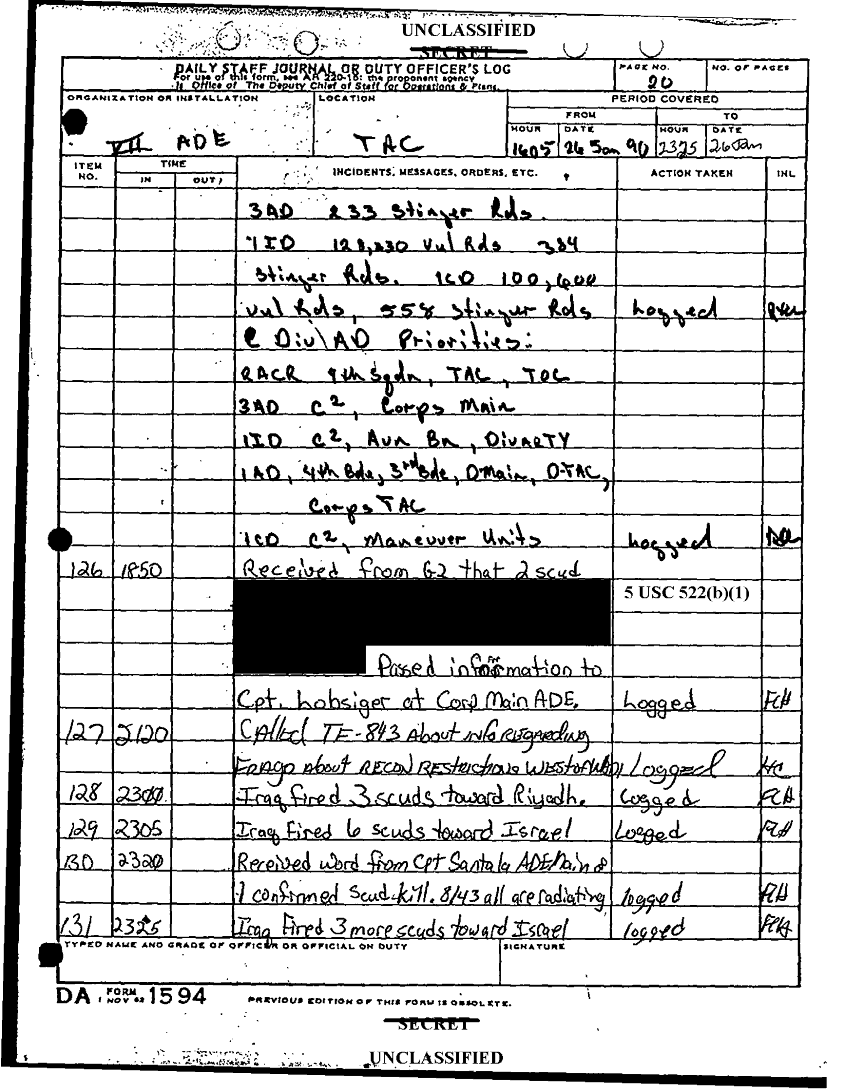 UNCLASSIFIED
SECRET
DAILY STAFF JOURNAL OR DUTY OFFICER'S LOG
For use of this form, see AR 220-15; the proponent agency
is Office of The Deputy Chief of Staff for Operations & Plans.
PAGE NO.
20
NO. OF PAGES
ORGANIZATION OR INSTALLATION
VII ADE
LOCATION
TAC
PERIOD COVERED
FROM
TO
HOUR DATE HOUR DATE
1605 26 Jan 90 2325 26 Jan
ITEM NO. TIME INCIDENTS, MESSAGES, ORDERS, ETC. ACTION TAKEN INL
IN OUT
3AD 233 Stinger Rds.
1ID 128,230 Vul Rds 384
Stinger Rds. 1CD 100,600
Vul Rds, 558 Stinger Rds Logged
Div\AD Priorities:
2ACR 4th Sqdn, TAC, TOC
3AD C², Corps Main
1ID C², Avn Bn, DIVARTY
1AD, 4th Bde, 3rd Bde, D-Main, D-TAC,
Corps TAC
1CD C², Maneuver Units Logged
126 1850 Received from G2 that 2 scud
5 USC 522(b)(1)
Passed information to
Cpt. Lobsiger at Corp Main ADE. Logged FCH
127 2120 CAlled TF-8/43 About info REgARding
FRAgo About RECON RESTRICTIONS WEST of WADI Logged HC
128 2300 Iraq fired 3 scuds toward Riyadh. Logged FCH
129 2305 Iraq Fired 6 scuds toward Israel Logged FCH
130 2320 Received word from Cpt Santala ADE Main of
1 confirmed Scud kill. 8/43 all are radiating logged FCH
131 2325 Iraq Fired 3 more scuds toward Israel logged FCH
TYPED NAME AND GRADE OF OFFICER OR OFFICIAL ON DUTY
SIGNATURE
DA FORM 1 NOV 62 1594
PREVIOUS EDITION OF THIS FORM IS OBSOLETE.
SECRET
UNCLASSIFIED